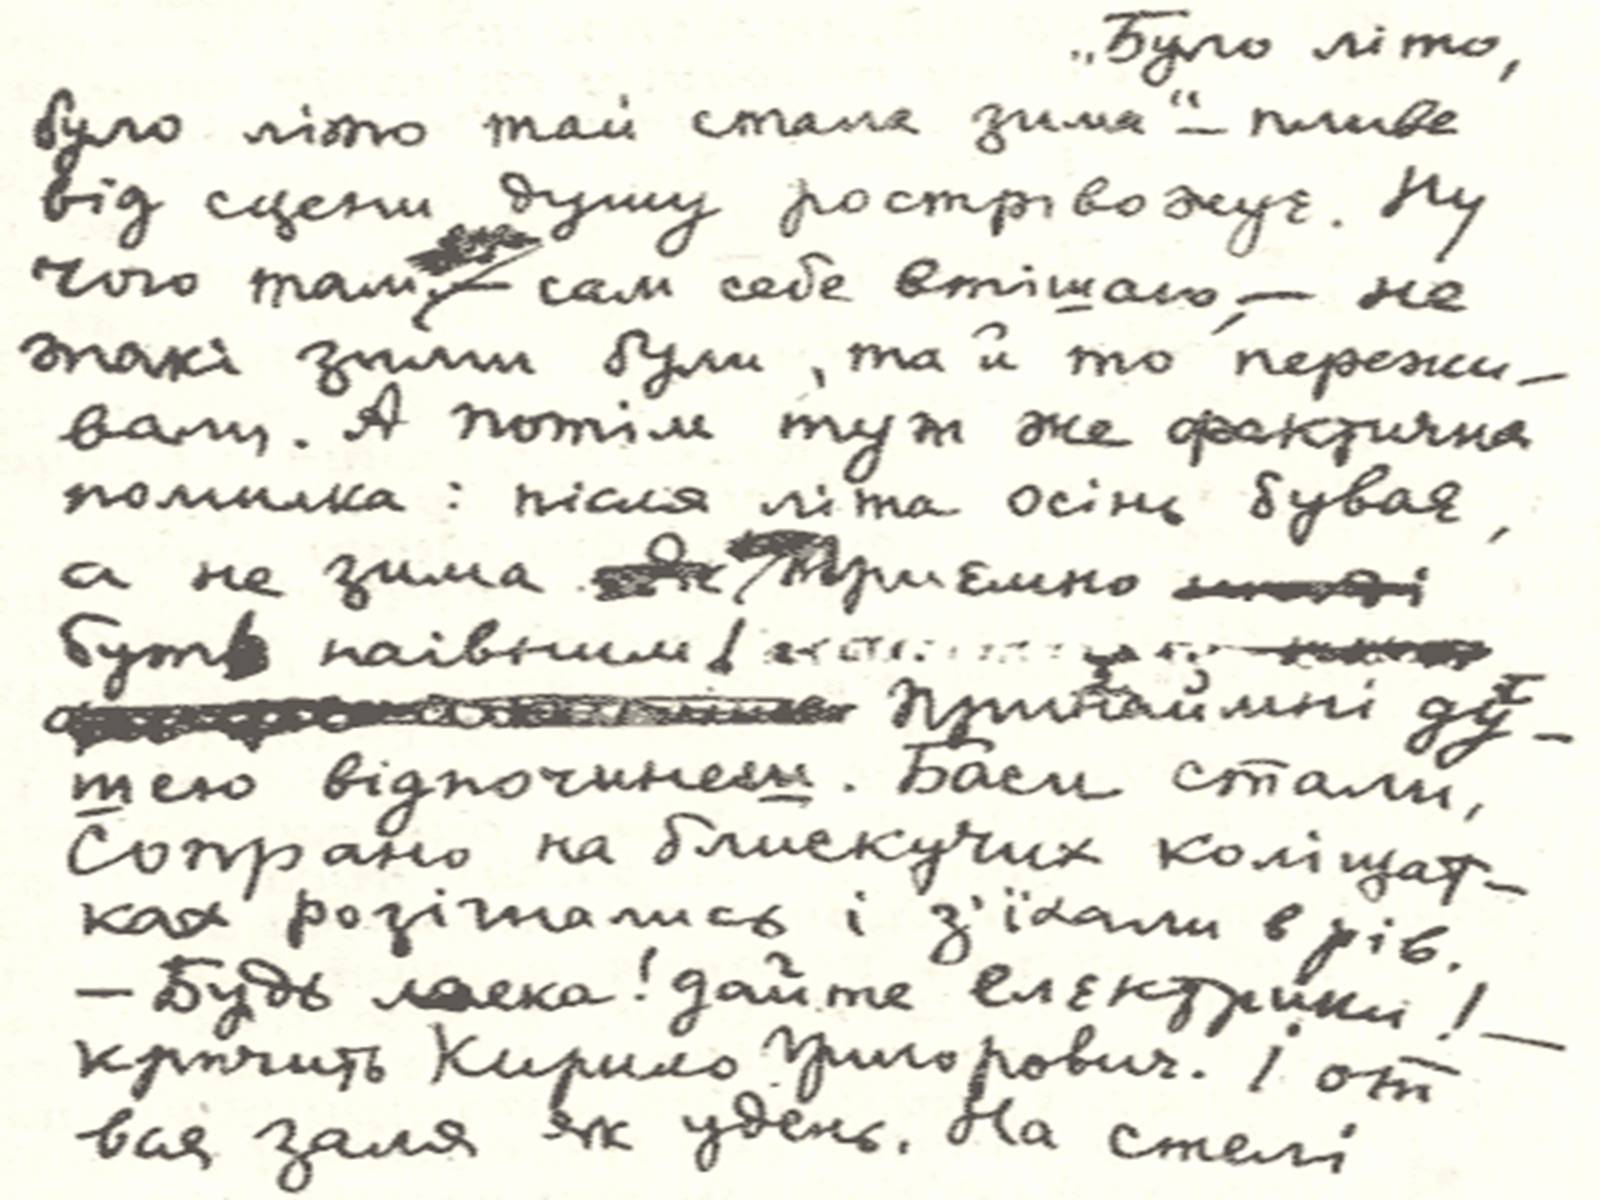 „Було літо,
було літо тай стала зима“ – пливе
від сцени душу рострівожує. Ну
чого там, – сам себе втішаю, – не
такі зими були, та й то пережи-
вали. А потім тут же фактична
помилка: після літа осінь буває,
а не зима. Приємно
буть наівним!
Принаймні ду-
шею відпочинеш. Баси стали,
Сопрано на блискучих коліщат-
ках розігнались і з'їхали в рів.
– Будь ласка! дайте електрики! –
кричить Кирило Григорович. І от
вся заля як удень. На стелі